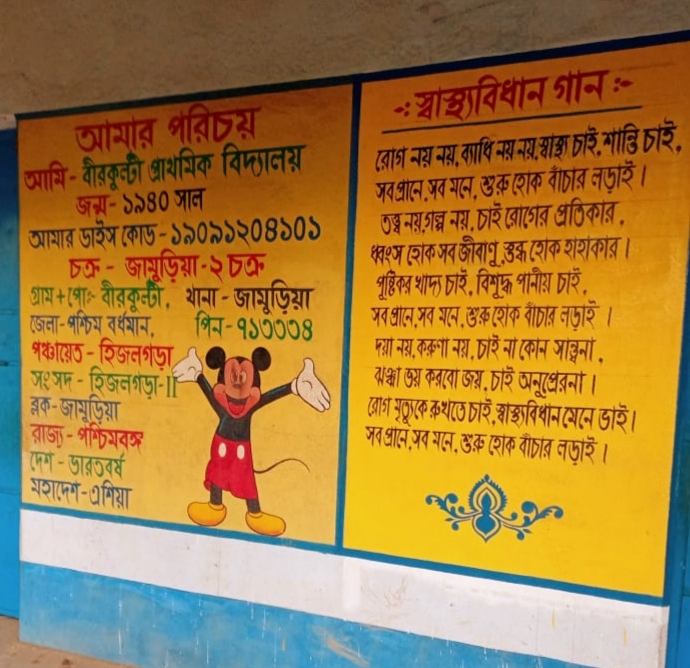 আমার পরিচয়
আমি - বীরকুল্টী প্রাথমিক বিদ্যালয়
জন্ম - ১৯৪০ সাল
আমার ডাইস কোড - ১৯০৯১২০৪১০১
চক্র - জামুড়িয়া - ২ চক্র
গ্রাম + পোঃ- বীরকুল্টী, থানা - জামুড়িয়া
জেলা - পশ্চিম বর্ধমান, পিন - ৭১৩৩৩৪
পঞ্চায়েত - হিজলগড়া
সংসদ - হিজলগড়া-II
ব্লক - জামুড়িয়া
রাজ্য - পশ্চিমবঙ্গ
দেশ - ভারতবর্ষ
মহাদেশ - এশিয়া
-: স্বাস্থ্যবিধান গান :-
রোগ নয় নয়, ব্যাধি নয় নয়, স্বাস্থ্য চাই, শান্তি চাই,
সব প্রানে, সব মনে, শুরু হোক বাঁচার লড়াই।
তত্ত্ব নয়, গল্প নয়, চাই রোগের প্রতিকার,
ধ্বংস হোক সব জীবাণু, স্তব্ধ হোক হাহাকার।
পুষ্টিকর খাদ্য চাই, বিশুদ্ধ পানীয় চাই,
সব প্রানে, সব মনে, শুরু হোক বাঁচার লড়াই।
দয়া নয়, করুণা নয়, চাই না কোন সান্ত্বনা,
ঝঞ্ঝা ভয় করবো জয়, চাই অনুপ্রেরনা।
রোগ মৃত্যুকে রুখতে চাই, স্বাস্থ্যবিধান মেনে ভাই।
সব প্রানে, সব মনে, শুরু হোক বাঁচার লড়াই।